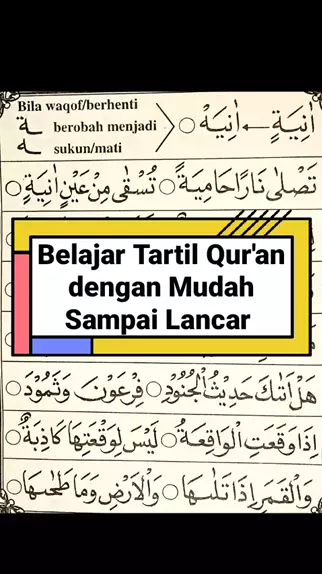 Bila waqof/berhenti
ـة berobah menjadi
ـه sukun/mati
اٰنِيَةٍ ← اٰنِيَهْ ○
تَصْلٰى نَارًا حَامِيَةً ○ تُسْقٰى مِنْ عَيْنٍ اٰنِيَةٍ ○
Belajar Tartil Qur'an
dengan Mudah
Sampai Lancar
هَلْ اَتٰىكَ حَدِيْثُ الْجُنُوْدِ ○ فِرْعَوْنَ وَثَمُوْدَ ○
اِذَا وَقَعَتِ الْوَاقِعَةُ ○ لَيْسَ لِوَقْعَتِهَا كَاذِبَةٌ ○
وَالْقَمَرِ اِذَا تَلٰىهَا ○ وَالْاَرْضِ وَمَا طَحٰىهَا ○